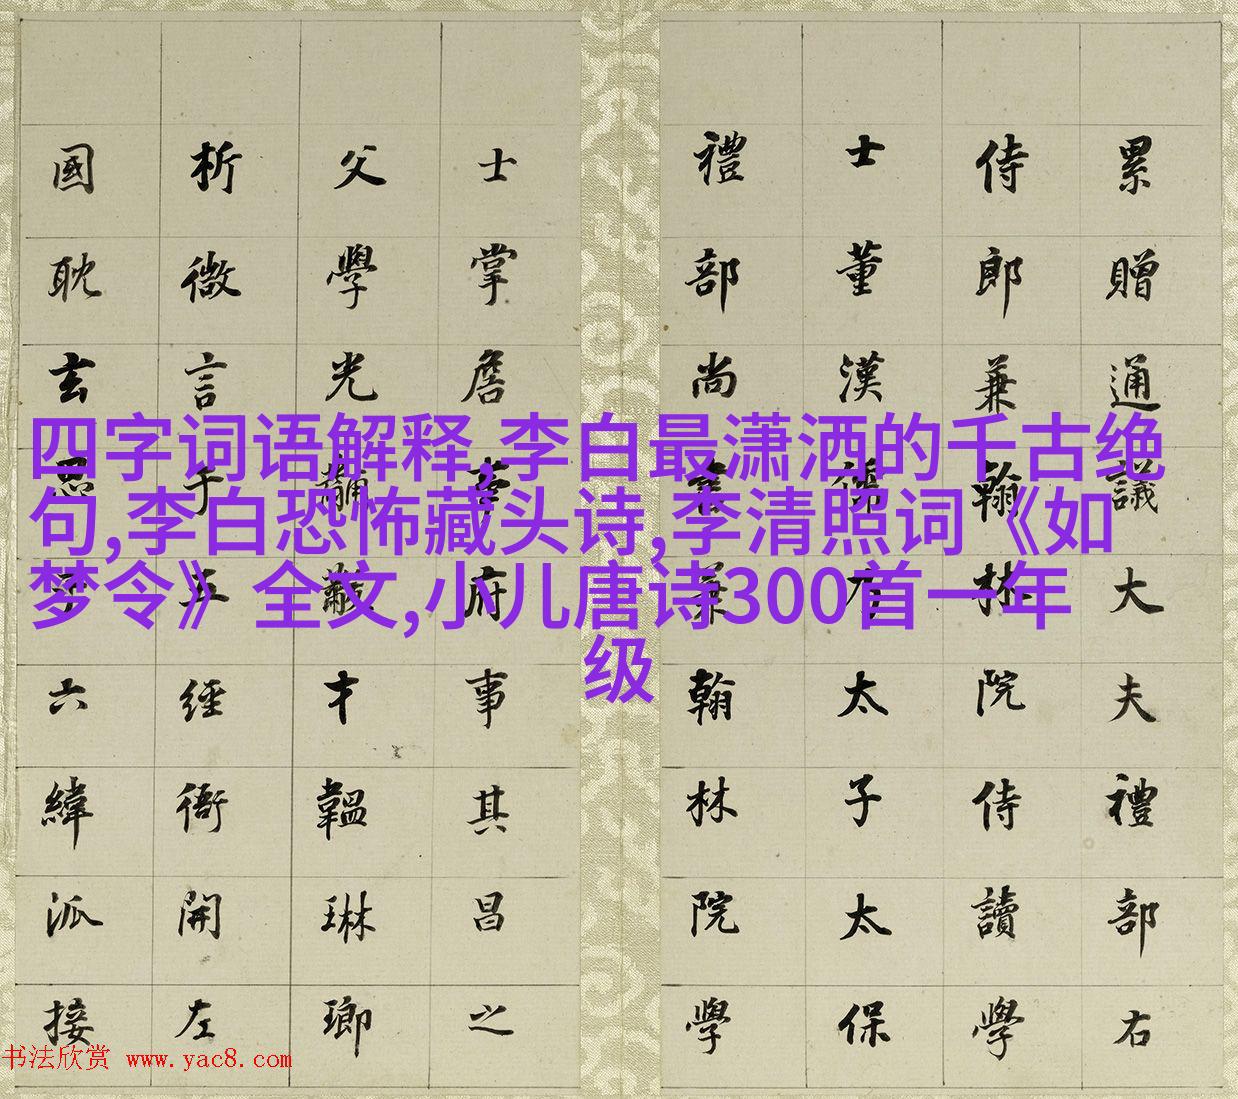 累贈通議大夫禮部右
侍郎兼翰林院侍讀學
士董漢太子太保
禮部尚書兼翰林院學
士掌詹事府事其昌之
父學光黼黻才韞琳瑯
析微言于五經衙開左
國耽玄六緯派接
四字词语解释,李白最潇洒的千古绝
句,李白恐怖藏头诗,李清照词《如
梦令》全文,小儿唐诗300首一年
级
书法欣赏 www.yac8.com